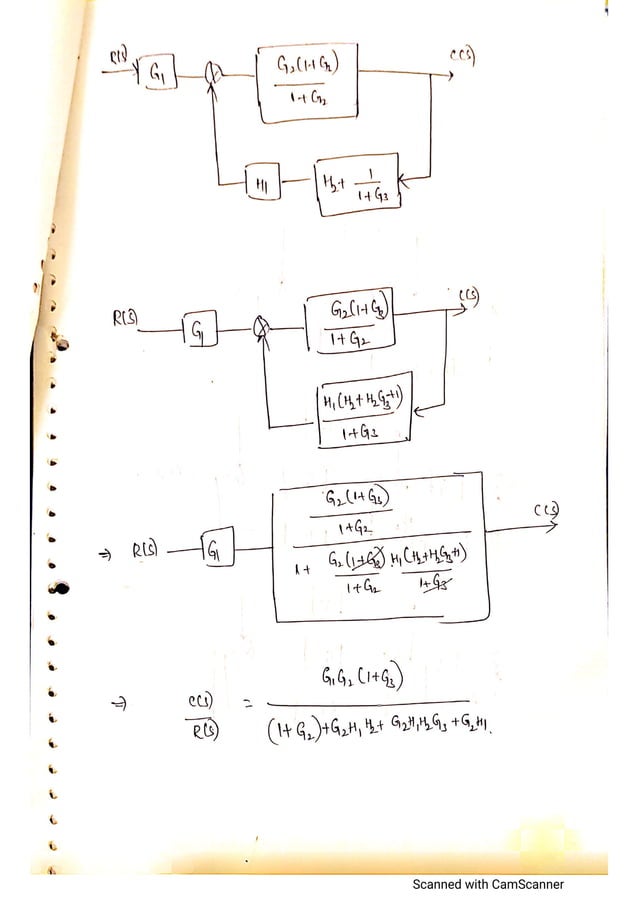 R(s) G1 G2(1+G3) / 1+G2 C(s)
H1 H2 + 1 / 1+G3
R(s) G1 G2(1+G3) / 1+G2 C(s)
H1(H2+H2G3+1) / 1+G3
G2(1+G3)
1+G2
⇒ R(s) G1 C(s)
1+ G2(1+G3) H1(H2+H2G3+1)
1+G2 1+G3
G1G2(1+G3)
⇒ C(s) / R(s) =
(1+G2)+G2H1H2+ G2H1H2G3 +G2H1.
Scanned with CamScanner